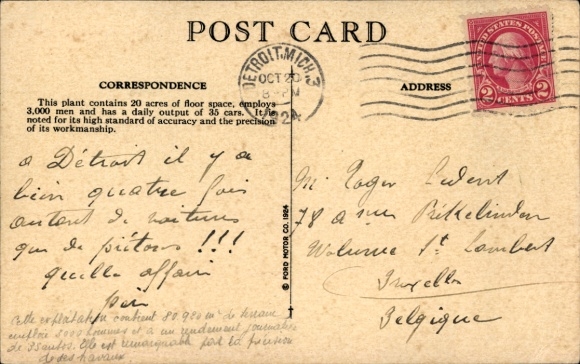 POST CARD
CORRESPONDENCE
ADDRESS
This plant contains 20 acres of floor space, employs
3,000 men and has a daily output of 35 cars. It is
noted for its high standard of accuracy and the precision
of its workmanship.
DETROIT, MICH. 3
OCT 20
8 PM
1924
UNITED STATES POSTAGE
2 CENTS 2
© FORD MOTOR CO. 1924
a Détroit il y a
bien quatre fois
autant de voitures
que de piétons !!!
quelle affair
Mr Roger Ledent
78 a rue
Woluwe St. Lambert
Bruxelles
Belgique
Cette exploitation contient 80.920 m² de terrain
emploie 3000 hommes et a un rendement journalier
de 35 autos. Elle est remarquable par la précision
de ses travaux